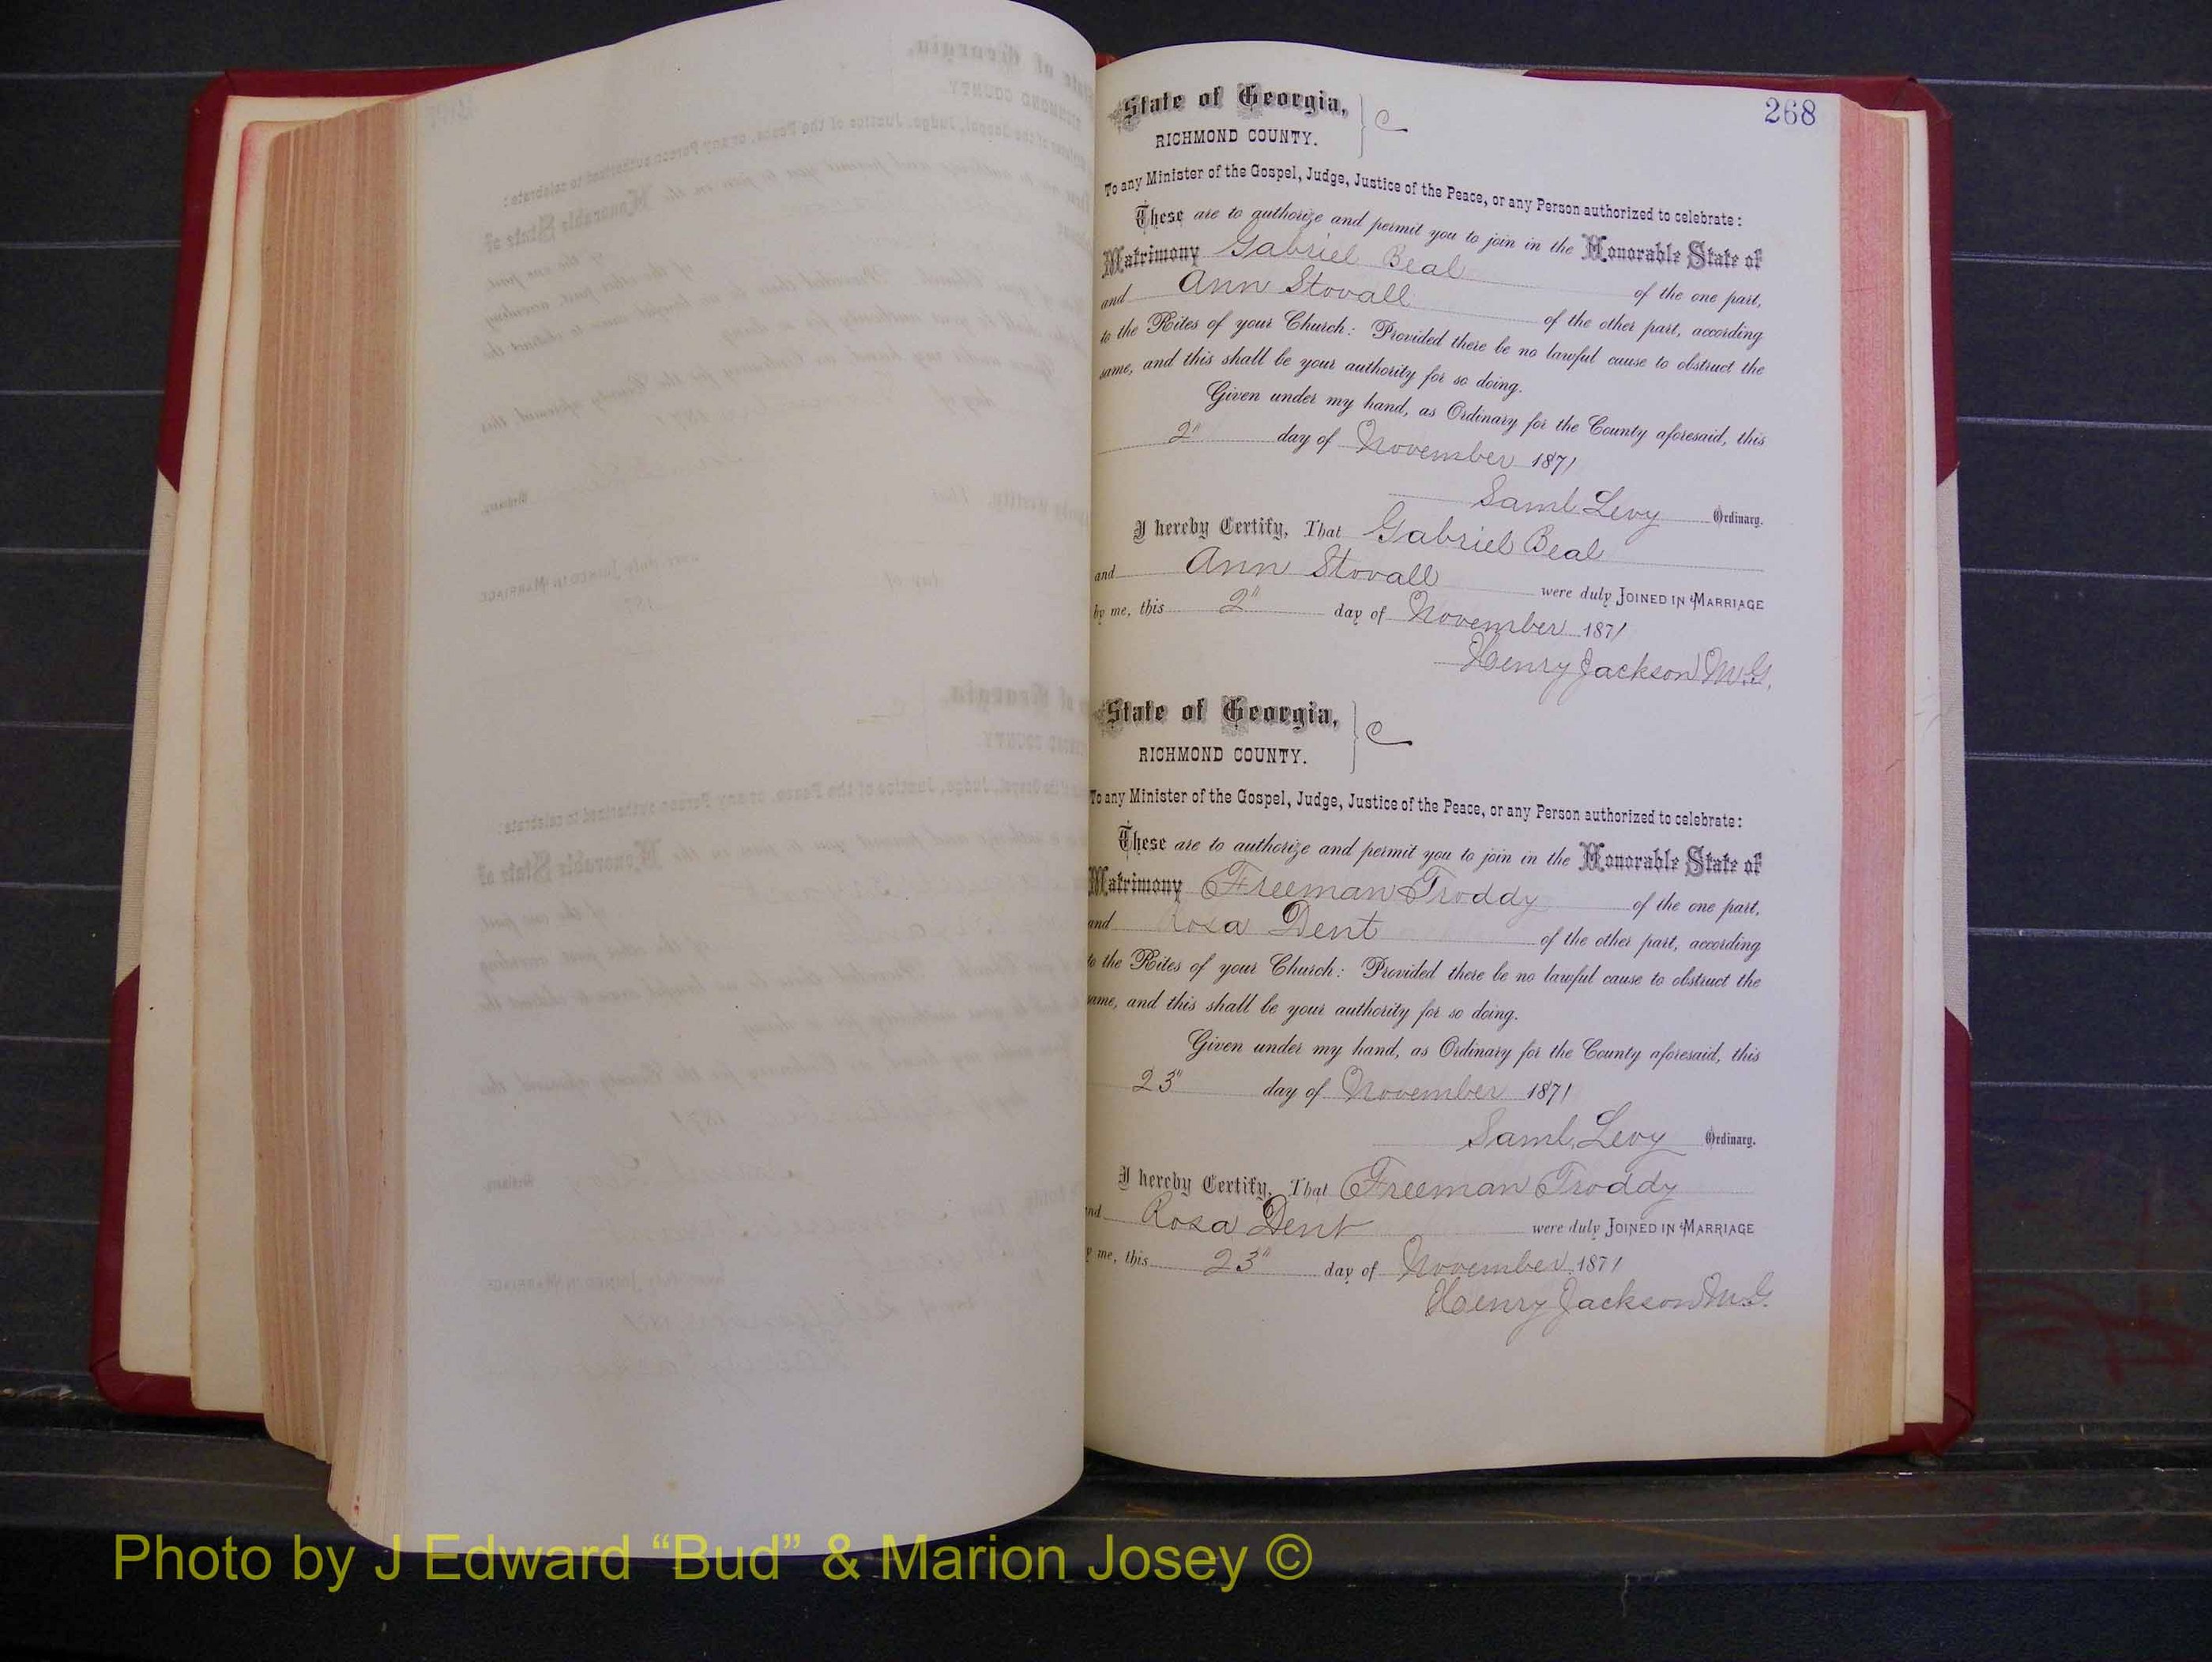 268
State of Georgia,
RICHMOND COUNTY. } C
To any Minister of the Gospel, Judge, Justice of the Peace, or any Person authorized to celebrate:
These are to authorize and permit you to join in the Honorable State of
Matrimony Gabriel Beal of the one part,
and Ann Stovall of the other part, according
to the Rites of your Church: Provided there be no lawful cause to obstruct the
same, and this shall be your authority for so doing.
Given under my hand, as Ordinary for the County aforesaid, this
2" day of November 1871
Saml Levy Ordinary.
I hereby Certify, That Gabriel Beal
and Ann Stovall were duly JOINED IN MARRIAGE
by me, this 2" day of November 1871
Henry Jackson M.G.
State of Georgia,
RICHMOND COUNTY. } C
To any Minister of the Gospel, Judge, Justice of the Peace, or any Person authorized to celebrate:
These are to authorize and permit you to join in the Honorable State of
Matrimony Freeman Troddy of the one part,
and Rosa Dent of the other part, according
to the Rites of your Church: Provided there be no lawful cause to obstruct the
same, and this shall be your authority for so doing.
Given under my hand, as Ordinary for the County aforesaid, this
23" day of November 1871
Saml. Levy Ordinary.
I hereby Certify, That Freeman Troddy
and Rosa Dent were duly JOINED IN MARRIAGE
by me, this 23" day of November 1871
Henry Jackson M.G.
Photo by J Edward “Bud” & Marion Josey ©